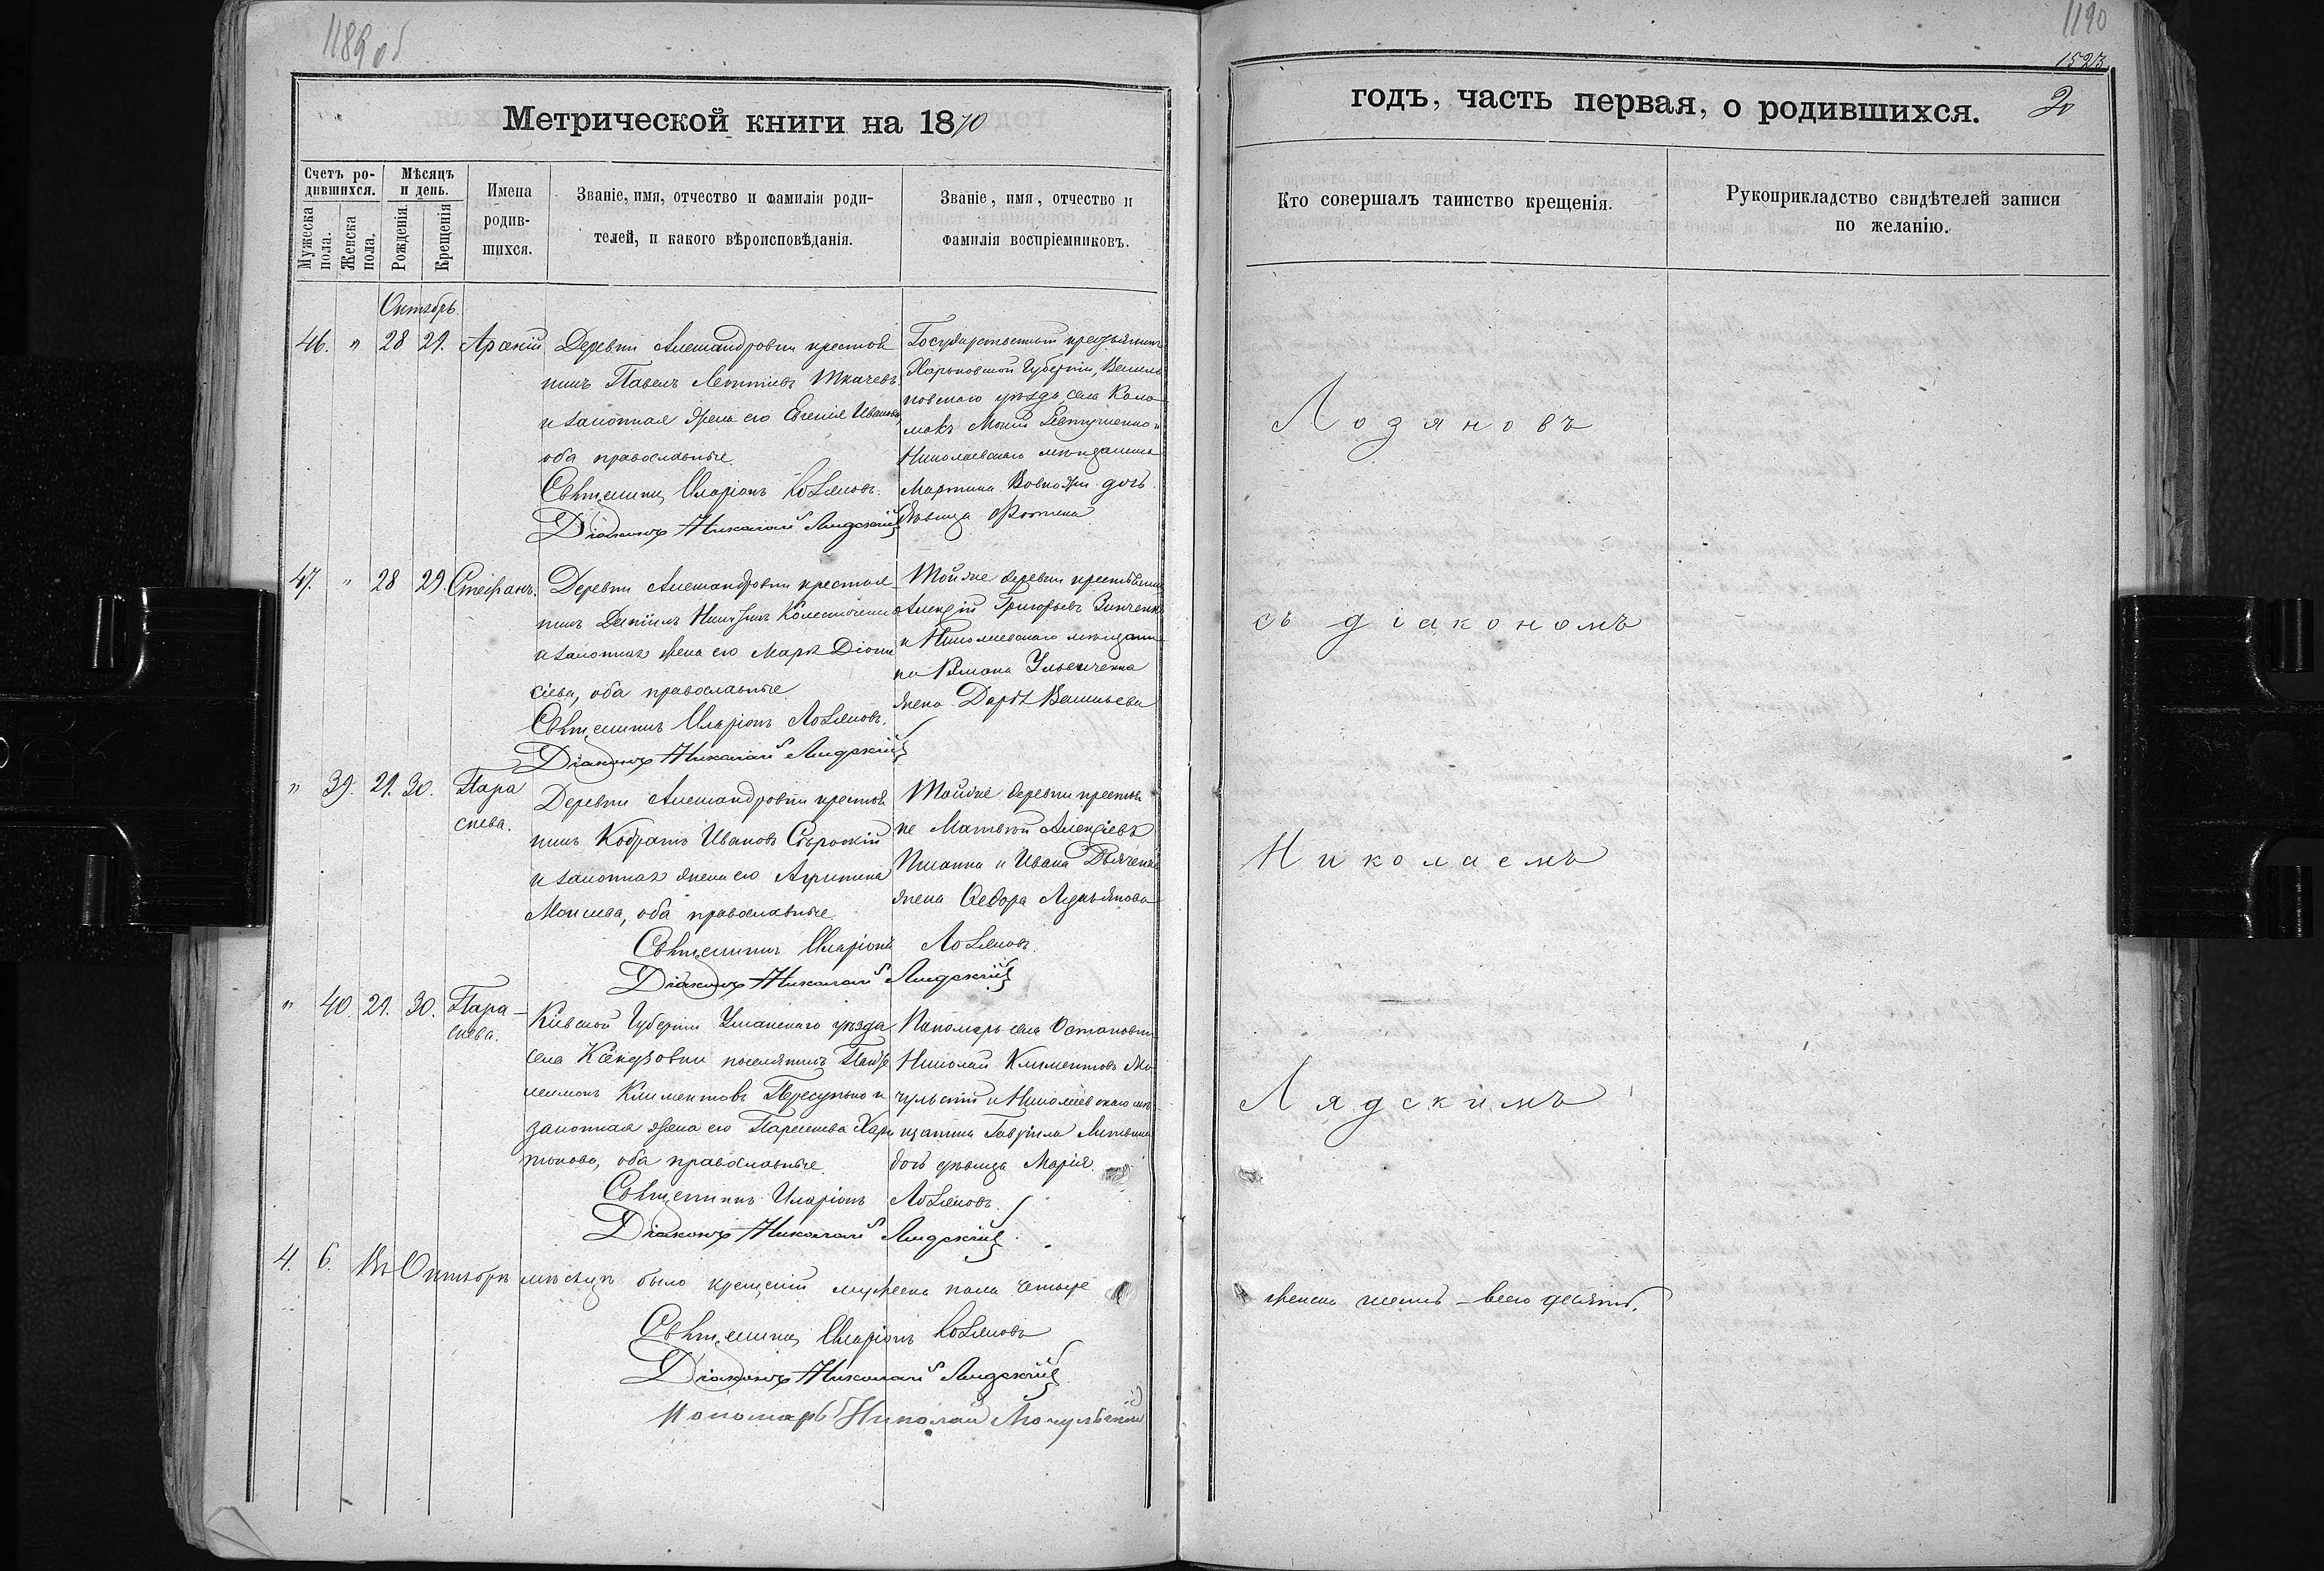 1189 об
Метрической книги на 1870
Счетъ ро-
дившихся.
Мѣсяцъ
и день.
Мужеска
пола.
Женска
пола.
Рожденія.
Крещенія
Имена
родив-
шихся.
Званіе, имя, отчество и фамилія роди-
телей, и какого вѣроисповѣданія.
Званіе, имя, отчество и
фамилія воспріемниковъ.
Октябрь.
46. " 28 29. Арсеній
Деревни Александровки крестья
нинъ Павелъ Леонтіевъ Ткачевъ
и законная жена его Евгенія Иванова,
оба православные.
Священникъ Иларіонъ Лозяновъ.
Діаконъ Николай Лядскій
Государственный крестьянинъ
Харьковской Губерніи, Валков
скаго уѣзда, села Коло
макъ Евтушенко и
Николаевскаго мѣщанина
Мартина дочь
дѣвица
47. " 28 29. Стефанъ.
Деревни Александровки крестья
нинъ Даніилъ Колесниченко
и законная жена его Марѳа Діони
сіева, оба православные
Священникъ Иларіонъ Лозяновъ.
Діаконъ Николай Лядскій
Той же деревни крестьянинъ
Алексій Григорьевъ Зинченко
и Николаевскаго мѣщани
на Романа Ульенченка
жена Дарія Васильева
" 39. 29. 30. Пара
скева.
Деревни Александровки крестья
нинъ Кодратъ Ивановъ
и законная жена его Агрипина
Моисеева, оба православные.
Священникъ Иларіонъ Лозяновъ.
Діаконъ Николай Лядскій
Той же деревни крестья
не Матвѣй Алексіевъ
и Ивана Дьяченка
жена Ѳедора Лукьянова
" 40. 29. 30. Пара-
скева.
Кіевской Губерніи Уманскаго уѣзда
села поселянинъ Панте
леимонъ Климентовъ Пересунько и
законная жена его Параскева Хари
тонова, оба православные.
Священникъ Иларіонъ Лозяновъ.
Діаконъ Николай Лядскій
Пономарь села Остаповки
Николай Климентовъ Мо
чульскій и Николаевскаго мѣ
щанина Гавріила Литвина
дочь дѣвица Марія.
4. 6. Въ Октябрѣ мѣсяцѣ было крещеній мужеска пола четыре
Священникъ Иларіонъ Лозяновъ
Діаконъ Николай Лядскій
Пономарь Николай Мочульскій
1190
1523
годъ, часть первая, о родившихся.
20
Кто совершалъ таинство крещенія.
Рукоприкладство свидѣтелей записи
по желанію.
Лозяновъ
съ діакономъ
Николаемъ
Лядскимъ
женска шесть – всего десять.